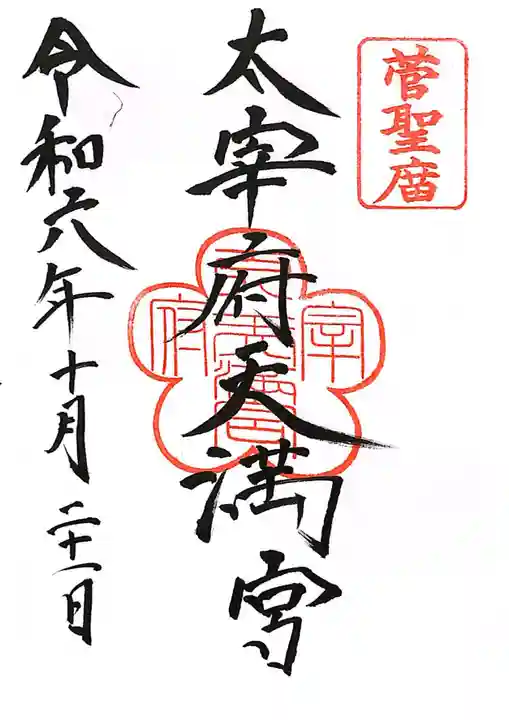 菅聖庿
太宰府天満宮
令和六年十月二十一日